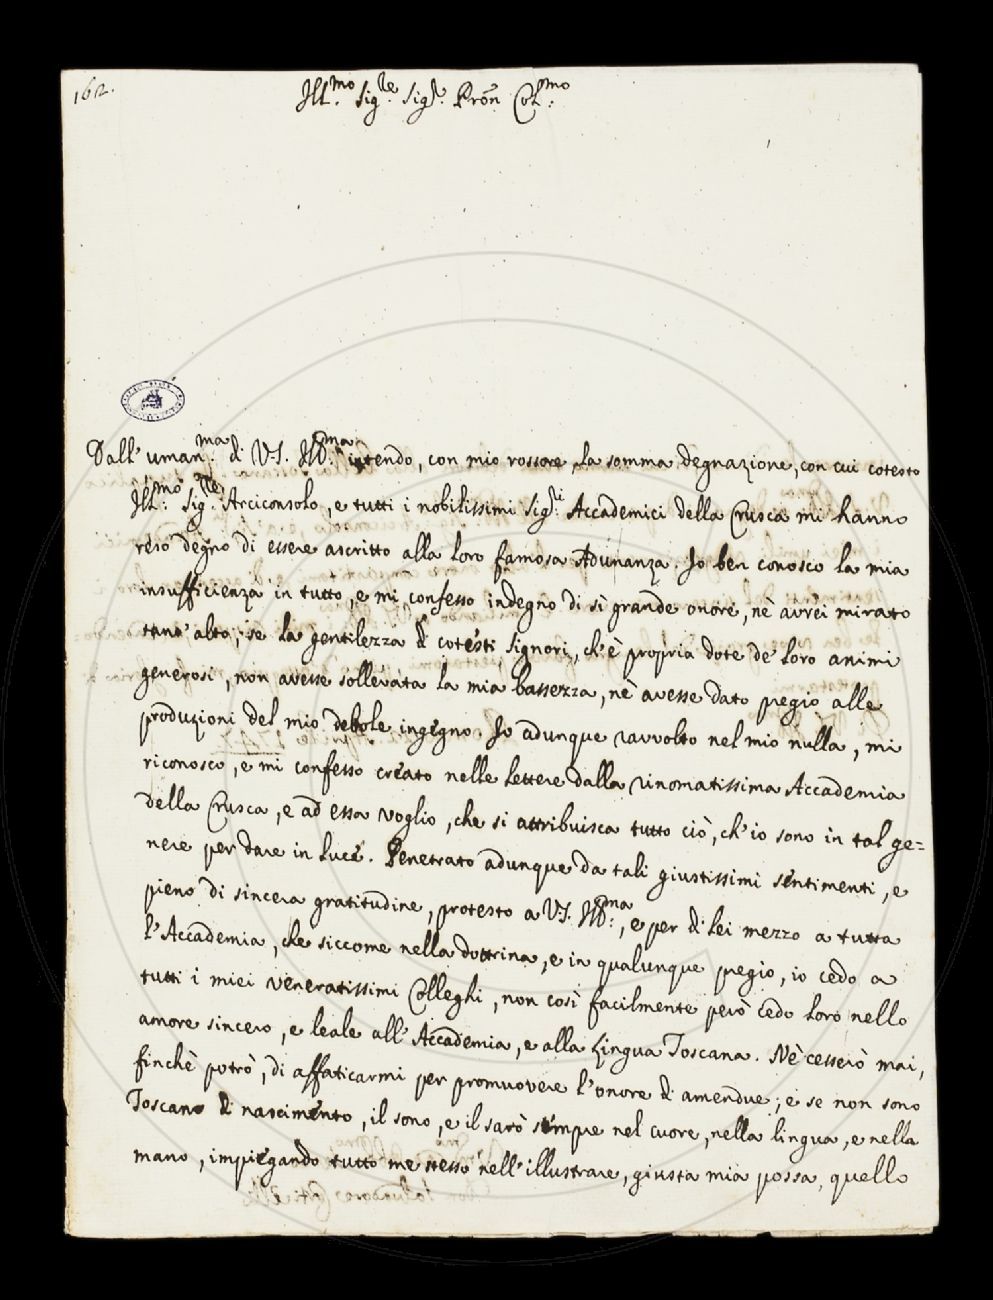 162.
Ill.mo Sig.re Sig.r Pron Col.mo
Dall' uman.ma di V.S. Ill.ma intendo, con mio rossore, la somma degnazione, con cui cotesto
Ill.mo Sig.re Arciconsolo, e tutti i nobilissimi Sig.ri Accademici della Crusca mi hanno
reso degno di essere ascritto alla loro famosa Adunanza. Io ben conosco la mia
insufficienza in tutto, e mi confesso indegno di sì grande onore, nè avrei mirato
tant' alto, se la gentilezza di cotesti Signori, ch'è propria dote de' loro animi
generosi, non avesse sollevata la mia bassezza, nè avesse dato pegio alle
produzioni del mio debole ingegno. Io adunque ravvolto nel mio nulla, mi
riconosco, e mi confesso creato nelle lettere dalla rinomatissima Accademia
della Crusca, e ad essa voglio, che si attribuisca tutto ciò, ch'io sono in tal ge=
nere per dare in luce. Penetrato adunque da tali giustissimi sentimenti, e
pieno di sincera gratitudine, protesto a V.S. Ill.ma, e per di lei mezzo a tutta
l'Accademia, che siccome nella dottrina, e in qualunque pegio, io cedo a
tutti i miei veneratissimi Colleghi, non così facilmente però cedo loro nello
amore sincero, e leale all' Accademia, e alla Lingua Toscana. Nè cesserò mai,
finchè potrò, di affaticarmi per promuovere l'onore di amendue; e se non sono
Toscano di nascimento, il sono, e il sarò sempre nel cuore, nella lingua, e nella
mano, impiegando tutto me stesso nell' illustrare, giusta mia possa, quello